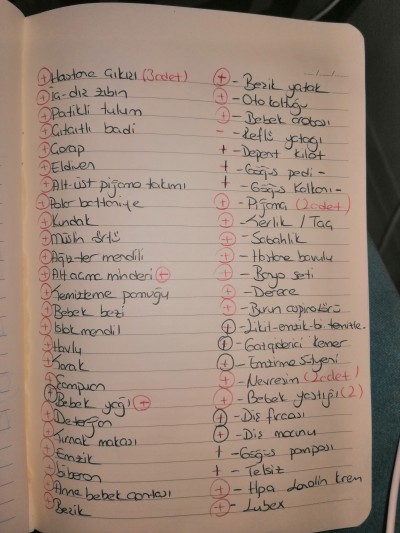 + Hastane Çıkışı (3 adet)
+ İç-dış zıbın
+ Patikli tulum
+ Çıtçıtlı badi
+ Çorap
+ Eldiven
+ Alt-üst pijama takımı
+ Polar battaniye
+ Kundak
+ Müslin örtü
+ Ağız-ter mendili
+ Alt açma minderi +
+ Temizleme pamuğu
+ Bebek bezi
+ Islak mendil
+ Havlu
+ Tarak
+ Şampuan
+ Bebek yağı +
+ Deterjan
+ Tırnak makası
+ Emzik
+ Biberon
+ Anne bebek çantası
+ Bezik
+ - Beşik yatak
+ - Oto koltuğu
+ - Bebek arabası
- - Reflü yatağı
+ - Depent külot
+ - Göğüs pedi -
+ - Göğüs Kalkanı -
+ - Pijama (2 adet)
+ - Terlik / Taç
+ - Sabahlık
+ - Hastane bavulu
+ - Banyo seti
+ - Derece
+ - Burun aspiratörü
+ - Likit-emzik-bi temizle.
+ - Gaz giderici kemer
+ - Emzirme Sütyeni
+ - Nevresim (2 adet)
+ - Bebek yastığı (2)
+ - Diş fırçası
+ - Diş macunu
+ - Göğüs pompası
+ - Telsiz
+ - Hpa Lanolin krem
+ - Lubex